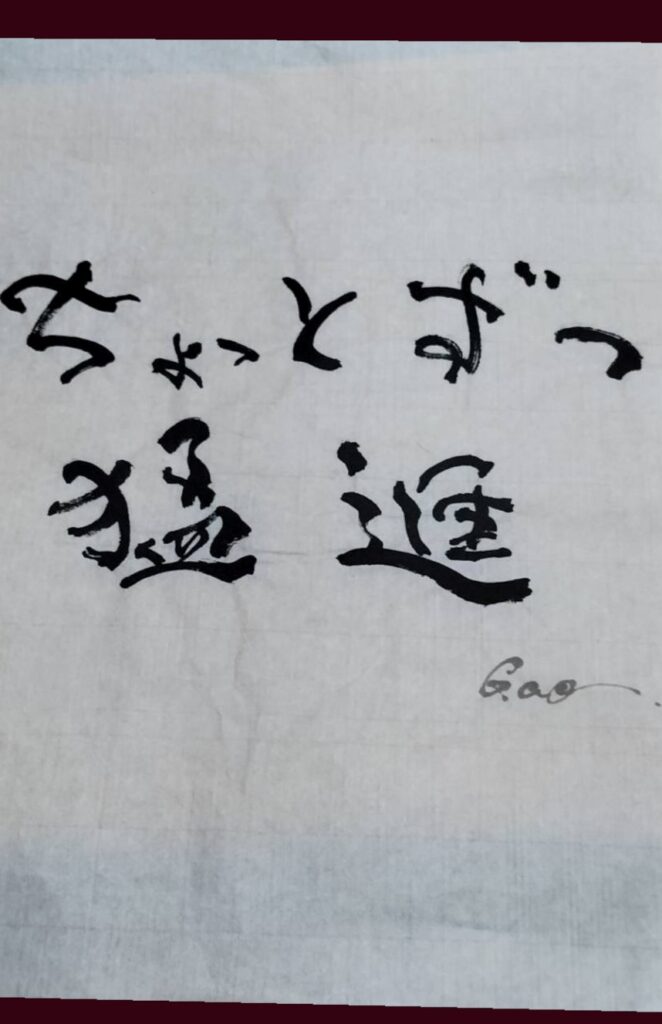 ちょっとずつ
猛進
Gao